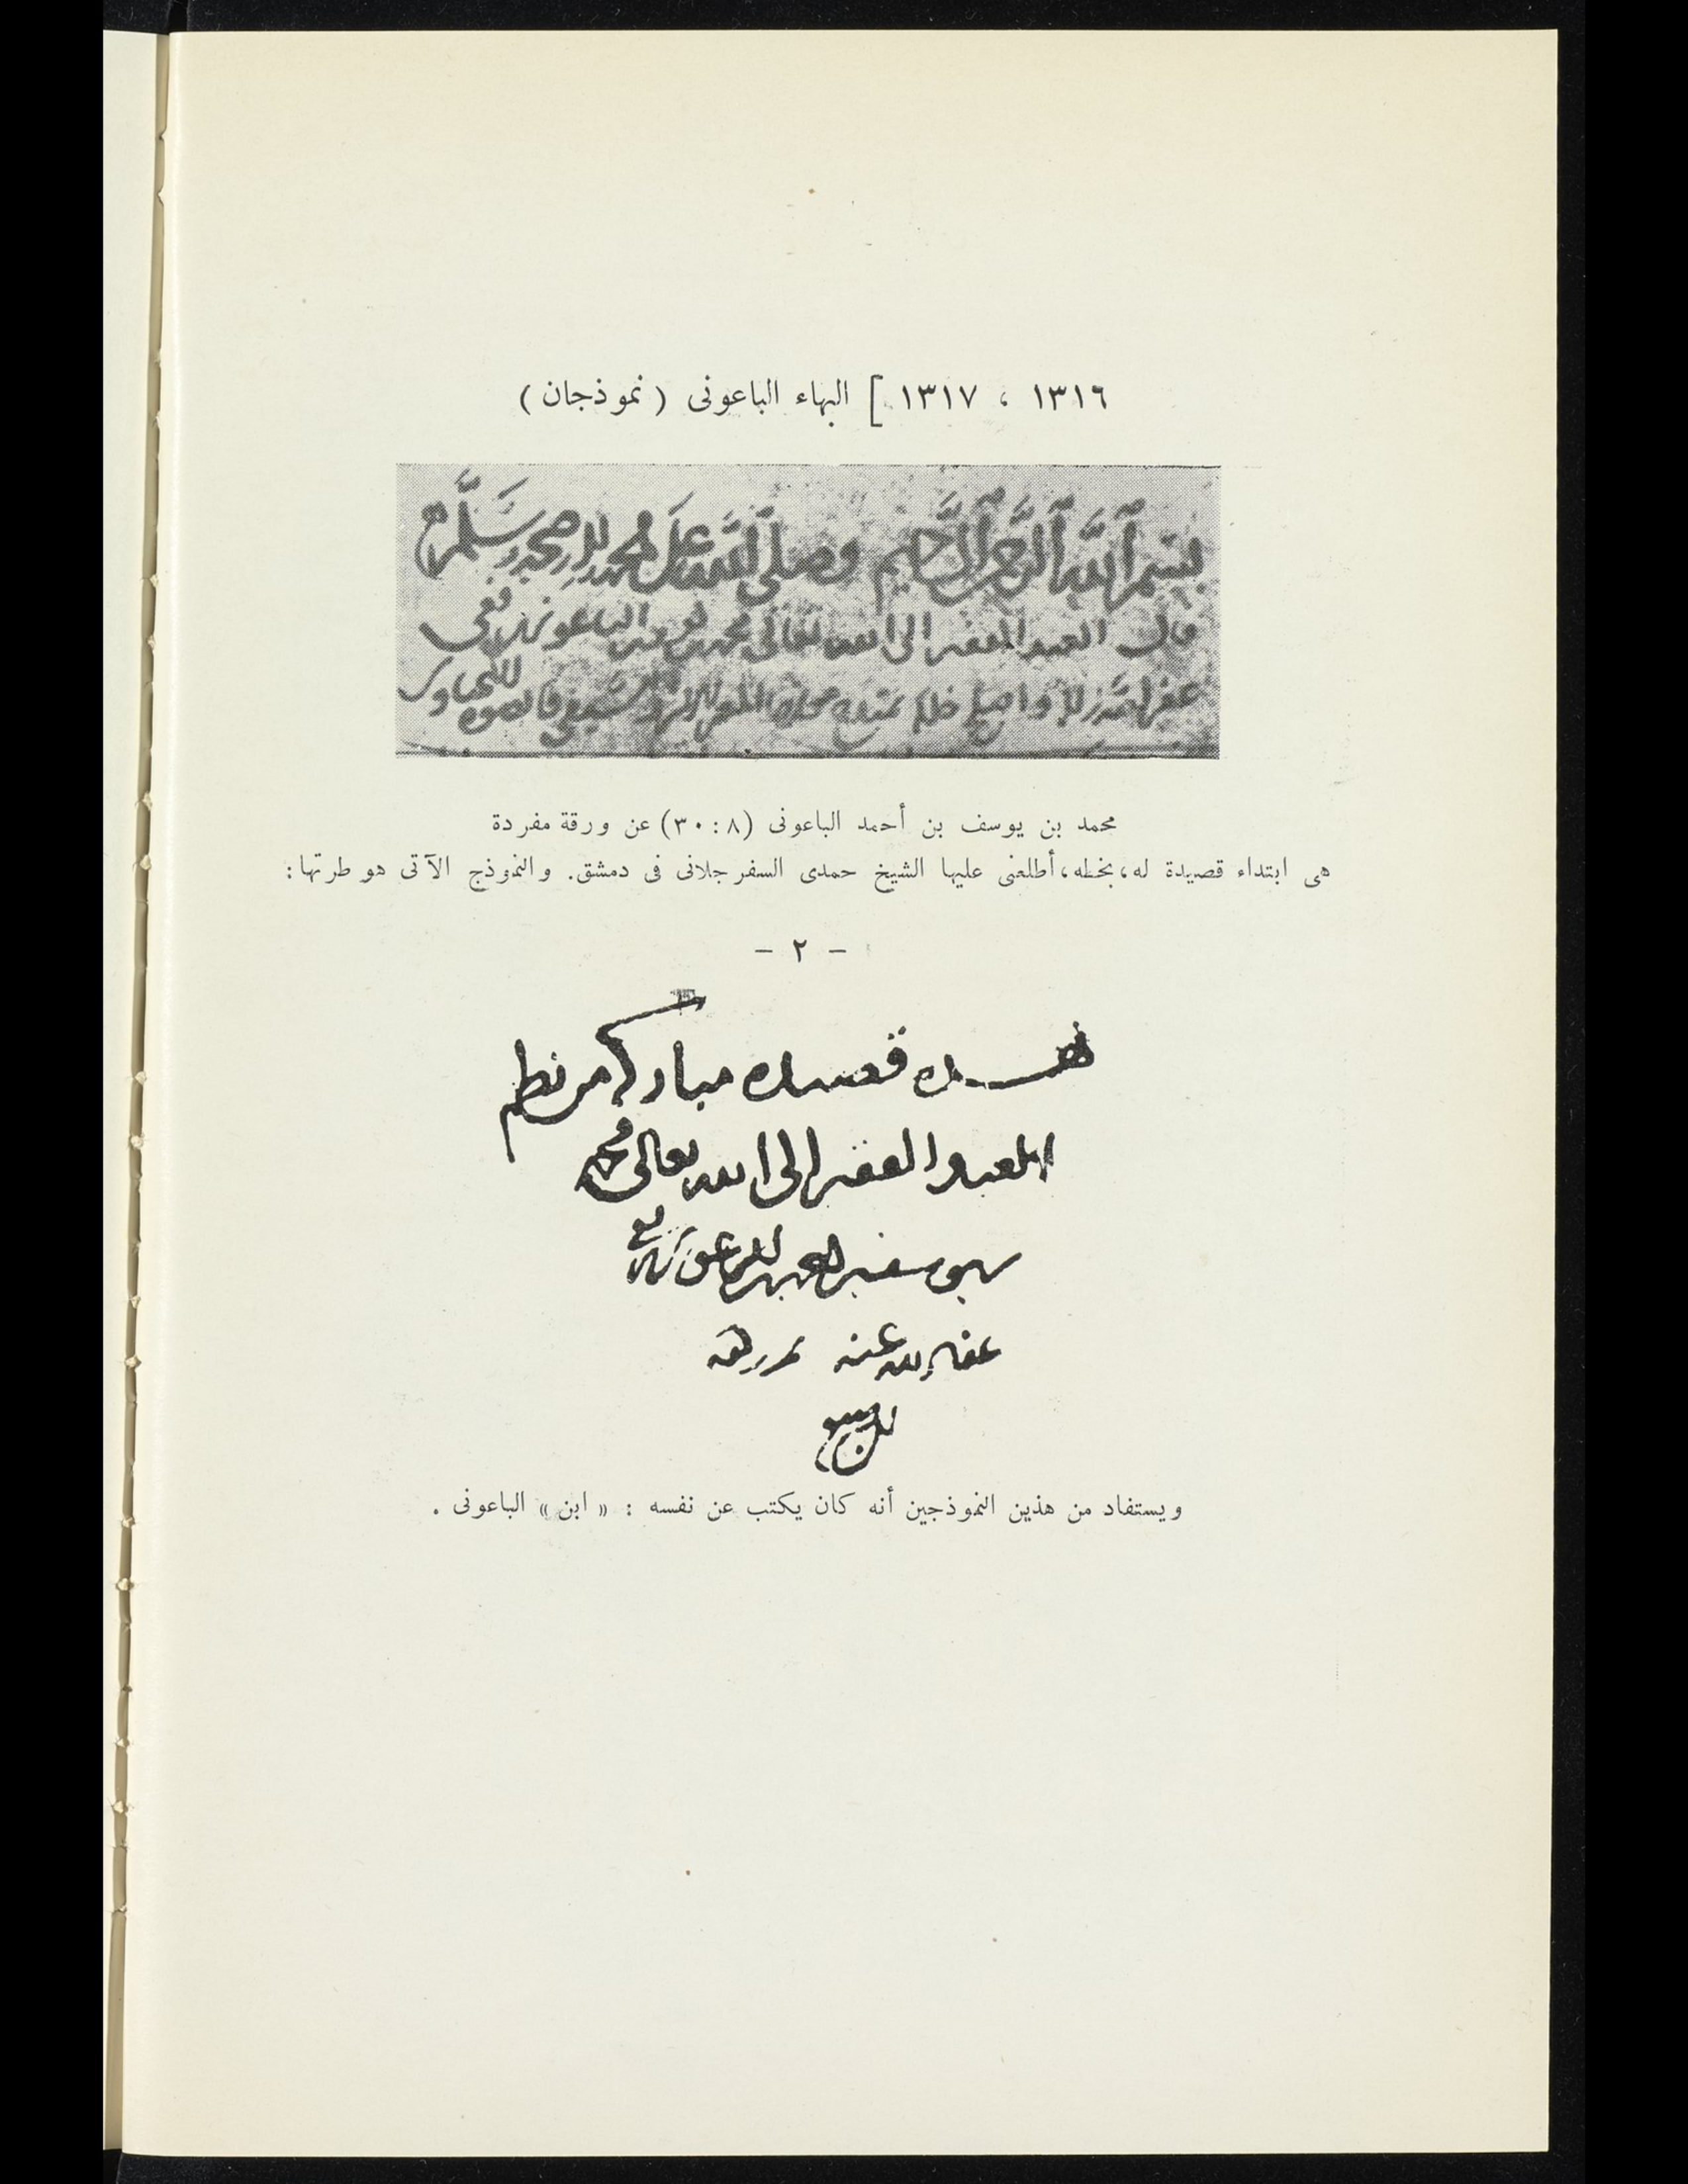 ١٣١٦ ، ١٣١٧ [ البهاء الباعونى ( نموذجان )
بسم الله الرحمن الرحيم وصلى الله على محمد وصحبه وسلم
قال العبد الفقير الى الله تعالى محمد بن يوسف الباعونى الشافعى
عفر الله
محمد بن يوسف بن أحمد الباعونى (٨ : ٣٠) عن ورقة مفردة
هى ابتداء قصيدة له ، بخطه ، أطلعنى عليها الشيخ حمدى السفرجلانى فى دمشق . والنموذج الآتى هو طرتها :
— ٢ —
هذه قصيده مباركه من نظم
العبد الفقير الى الله تعالى محمد
بن يوسف بن الباعونى الشافعى
عفا الله عنه
ويستفاد من هذين النموذجين أنه كان يكتب عن نفسه : « ابن » الباعونى .